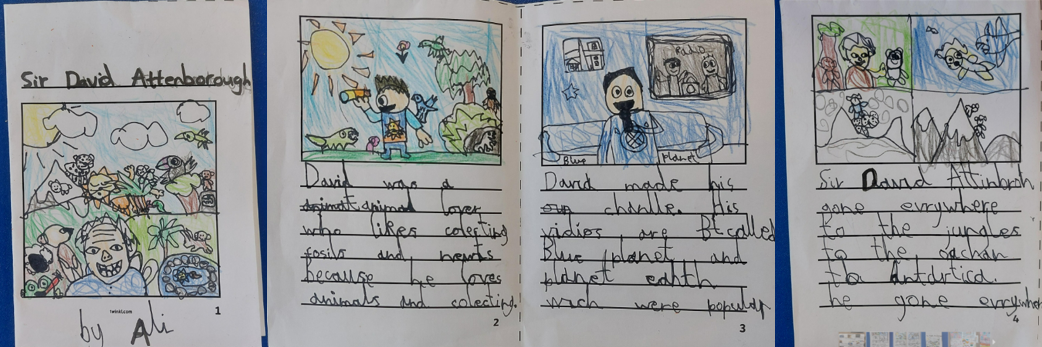 Sir David Attenborough
twinkl.com
1
by Ali
David was a
animal lover
who likes colecting
fosils and newts
because he loves
animals and colecting.
2
Blue Planet
David made his
chanlle. His
vidios are called
Blue planet and
planet eanth
wich were populap
3
Sir David Attinbroh
gone evrywhere
to the jungles
to the oachan
to Antdrtica.
he gone evrywher
4